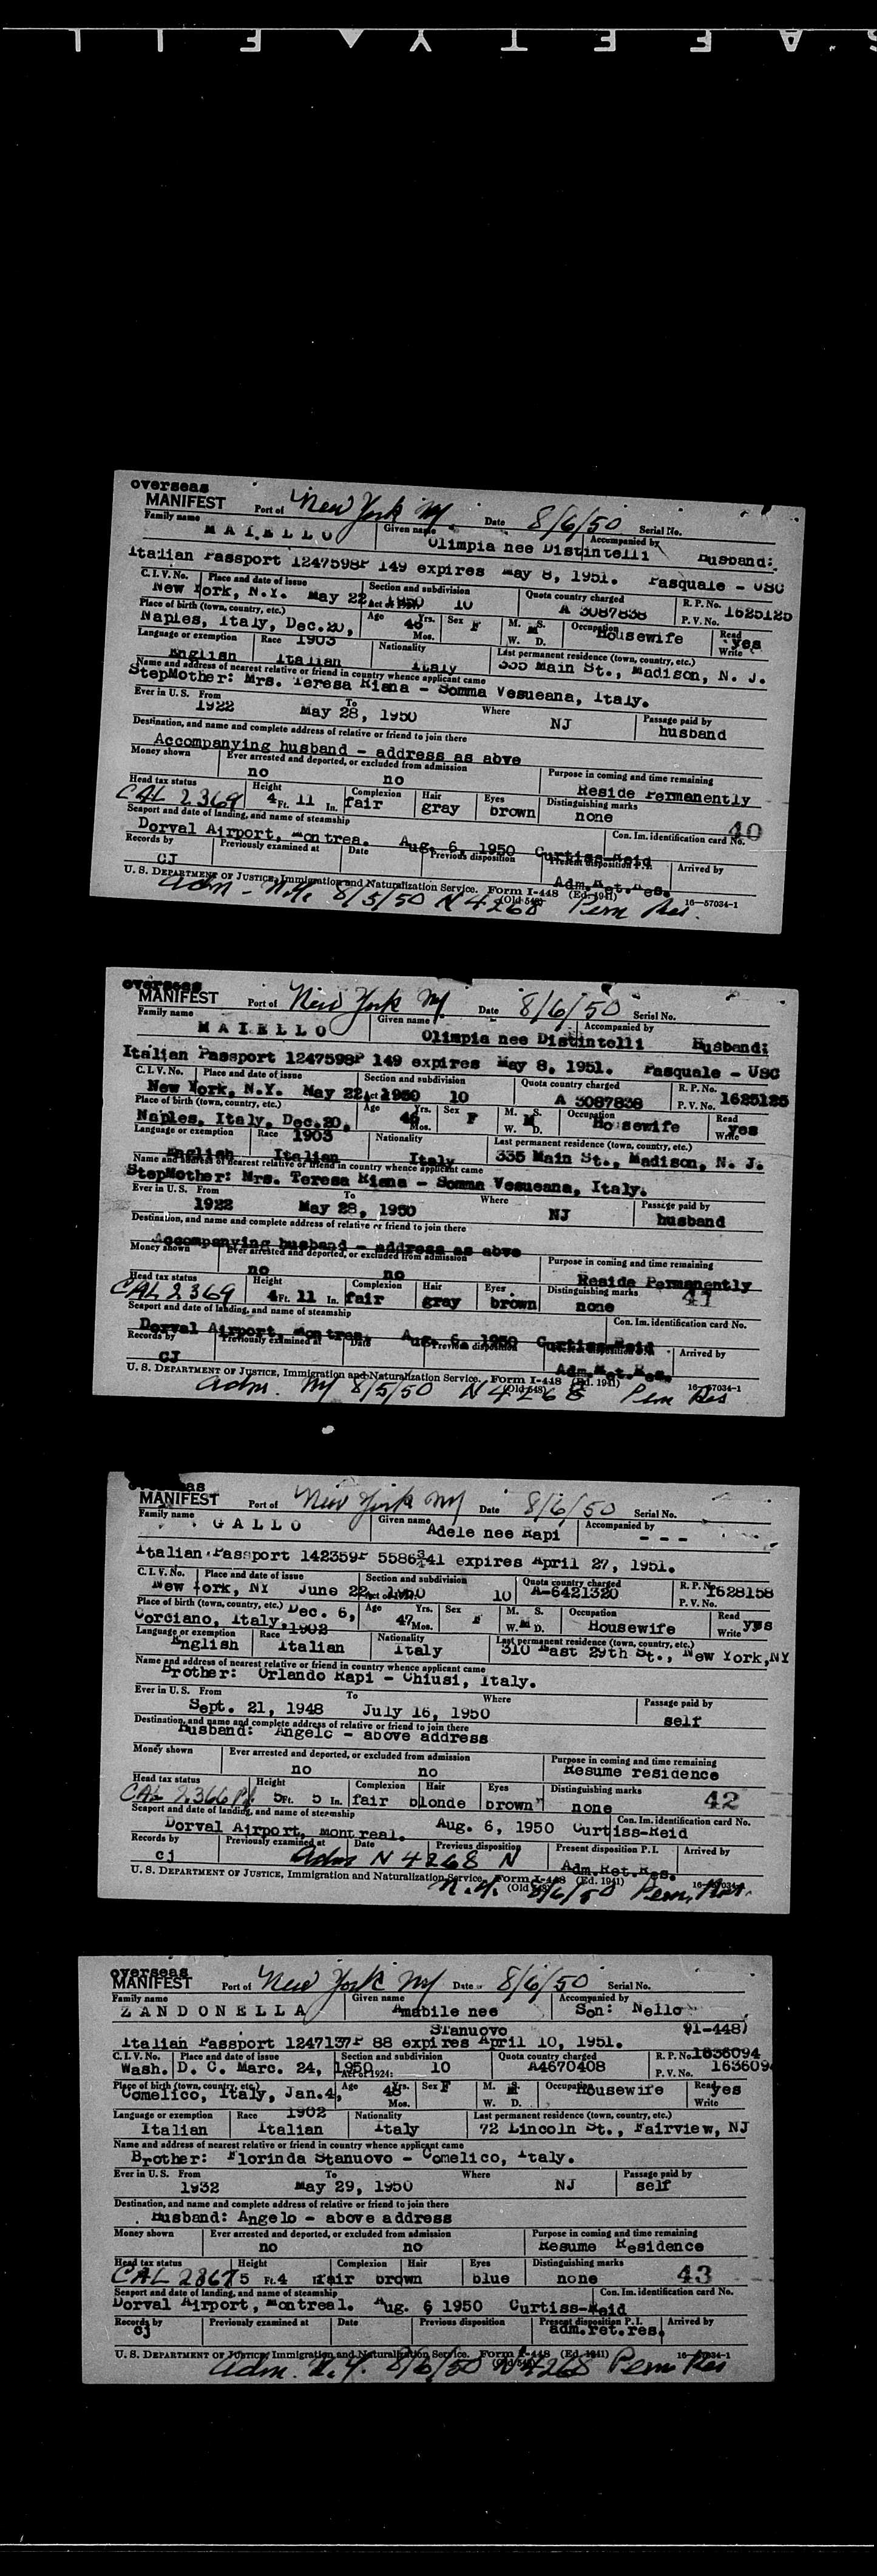 SAFETY FILM
overseas
MANIFEST Port of New York NY Date 8/6/50 Serial No.
Family name Given name Accompanied by
MAIELLO Olimpia nee Distintelli Husband:
Italian Passport 1247598P 149 expires May 8, 1951. Pasquale - USC
C. I. V. No. Place and date of issue Section and subdivision Quota country charged R. P. No. 1625125
New York, N.Y. May 22 1950 10 A 3087838 P. V. No.
Place of birth (town, country, etc.) Age 46 Yrs. Mos. Sex F M. S. W. D. M Occupation Housewife Read yes Write
Naples, Italy, Dec.20, 1903
Language or exemption Race Nationality Last permanent residence (town, country, etc.)
English Italian Italy 335 Main St., Madison, N. J.
Name and address of nearest relative or friend in country whence applicant came
StepMother: Mrs. Teresa Riana - Somma Vesueana, Italy.
Ever in U. S. From To Where Passage paid by
1922 May 28, 1950 NJ husband
Destination, and name and complete address of relative or friend to join there
Accompanying husband - address as abve
Money shown Ever arrested and deported, or excluded from admission Purpose in coming and time remaining
no no Reside Permanently
Head tax status Height Complexion Hair Eyes Distinguishing marks
CAL 2369 4 Ft. 11 In. fair gray brown none 40
Seaport and date of landing, and name of steamship Con. Im. identification card No.
Dorval Airport, Montrea. Aug. 6, 1950 Curtiss-Reid
Records by Previously examined at Date Previous disposition Present disposition P.I. Arrived by
CJ Adm.Ret.Res.
U. S. DEPARTMENT OF JUSTICE, Immigration and Naturalization Service. Form I-448 (Old 548) (Ed. 1941) 16—57034-1
Adm - N.Y. 8/5/50 N 4268 Perm Res.
overseas
MANIFEST Port of New York NY Date 8/6/50 Serial No.
Family name Given name Accompanied by
MAIELLO Olimpia nee Distintelli Husband:
Italian Passport 1247598P 149 expires May 8, 1951. Pasquale - USC
C. I. V. No. Place and date of issue Section and subdivision Quota country charged R. P. No.
New York, N.Y. May 22 1950 10 A 3087838 P. V. No. 1625125
Place of birth (town, country, etc.) Age 46 Yrs. Mos. Sex F M. S. W. D. M Occupation Housewife Read yes Write
Naples, Italy, Dec.20, 1903
Language or exemption Race Nationality Last permanent residence (town, country, etc.)
English Italian Italy 335 Main St., Madison, N. J.
Name and address of nearest relative or friend in country whence applicant came
StepMother: Mrs. Teresa Riana - Somma Vesueana, Italy.
Ever in U. S. From To Where Passage paid by
1922 May 28, 1950 NJ husband
Destination, and name and complete address of relative or friend to join there
Accompanying husband - address as abve
Money shown Ever arrested and deported, or excluded from admission Purpose in coming and time remaining
no no Reside Permanently
Head tax status Height Complexion Hair Eyes Distinguishing marks 41
CAL 2369 4 Ft. 11 In. fair gray brown none
Seaport and date of landing, and name of steamship Con. Im. identification card No.
Dorval Airport, Montrea. Aug. 6, 1950 Curtiss-Reid
Records by Previously examined at Date Previous disposition Arrived by
CJ Adm.Ret.Res.
U. S. DEPARTMENT OF JUSTICE, Immigration and Naturalization Service. Form I-448 (Old 548) (Ed. 1941) 16—57034-1
Adm. NY 8/5/50 N 4268 Perm Res
overseas
MANIFEST Port of New York NY Date 8/6/50 Serial No.
Family name Given name Accompanied by
GALLO Adele nee Rapi - - -
Italian Passport 142359P expires April 27, 1951.
C. I. V. No. Place and date of issue Section and subdivision Quota country charged R. P. No. 1628158
New York, NY June 22, 1950 10 A-6421320 P. V. No.
Place of birth (town, country, etc.) Dec. 6, Age 47 Yrs. Mos. Sex F M. S. W. D. M Occupation Housewife Read yes Write
Corciano, Italy, 1902
Language or exemption Race Nationality Last permanent residence (town, country, etc.)
English Italian Italy 310 East 29th St., New York,NY
Name and address of nearest relative or friend in country whence applicant came
Brother: Orlando Rapi - Chiusi, Italy.
Ever in U. S. From To Where Passage paid by
Sept. 21, 1948 July 16, 1950 self
Destination, and name and complete address of relative or friend to join there
Husband: Angelo - above address
Money shown Ever arrested and deported, or excluded from admission Purpose in coming and time remaining
no no Resume residence
Head tax status Height Complexion Hair Eyes Distinguishing marks
CAL 2366 5 Ft. 5 In. fair blonde brown none 42
Seaport and date of landing, and name of steamship Con. Im. identification card No.
Dorval Airport, Montreal. Aug. 6, 1950 Curtiss-Reid
Records by Previously examined at Date Previous disposition Present disposition P.I. Arrived by
cj Adm N 4268 N Adm.Ret.Res.
U. S. DEPARTMENT OF JUSTICE, Immigration and Naturalization Service. Form I-448 (Old 548) (Ed. 1941) 16—57034-1
N.Y. 8/6/50 Perm. Res.
overseas
MANIFEST Port of New York NY Date 8/6/50 Serial No.
Family name Given name Accompanied by
ZANDONELLA Amabile nee Son: Nello
Stanuovo (I-448)
Italian Passport 1247137P 88 expires April 10, 1951.
C. I. V. No. Place and date of issue Section and subdivision Quota country charged R. P. No. 1636094
Wash. D. C. Marc. 24, 1950 Act of 1924: 10 A4670408 P. V. No. 1636094
Place of birth (town, country, etc.) Age 48 Yrs. Mos. Sex F M. S. W. D. M Occupation Housewife Read yes Write
Comelico, Italy, Jan.4, 1902
Language or exemption Race Nationality Last permanent residence (town, country, etc.)
Italian Italian Italy 72 Lincoln St., Fairview, NJ
Name and address of nearest relative or friend in country whence applicant came
Brother: Florinda Stanuovo - Comelico, Italy.
Ever in U. S. From To Where Passage paid by
1932 May 29, 1950 NJ self
Destination, and name and complete address of relative or friend to join there
Husband: Angelo - above address
Money shown Ever arrested and deported, or excluded from admission Purpose in coming and time remaining
no no Resume Residence
Head tax status Height Complexion Hair Eyes Distinguishing marks
CAL 2367 5 Ft. 4 In. fair brown blue none 43
Seaport and date of landing, and name of steamship Con. Im. identification card No.
Dorval Airport, Montreal. Aug. 6 1950 Curtiss-Reid
Records by Previously examined at Date Previous disposition Present disposition P.I. Arrived by
cj adm.ret.res.
U. S. DEPARTMENT OF JUSTICE, Immigration and Naturalization Service. Form I-448 (Old 548) (Ed. 1941) 16—57034-1
Adm. N.Y. 8/6/50 N 4268 Perm Res